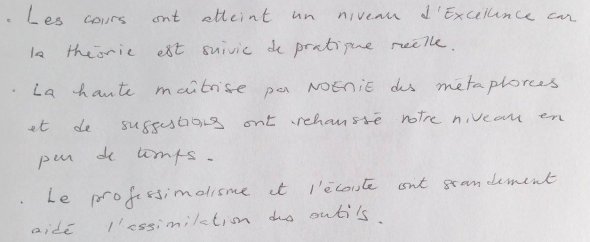 . Les cours ont atteint un niveau d'Excellence car
la théorie est suivie de pratique réelle.
. La haute maîtrise par NOEMIE des métaphores
et de suggestions ont rehaussé notre niveau en
peu de temps.
. Le professionalisme et l'écoute ont grandement
aidé l'assimilation des outils.